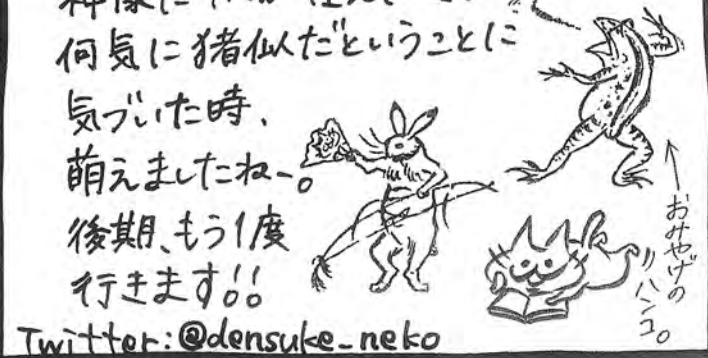 何気に猪似だということに
気づいた時、
萌えましたねー。
後期、もう1度
行きます!!
Twitter:@densuke_neko
←おみやげの
ハンコ。